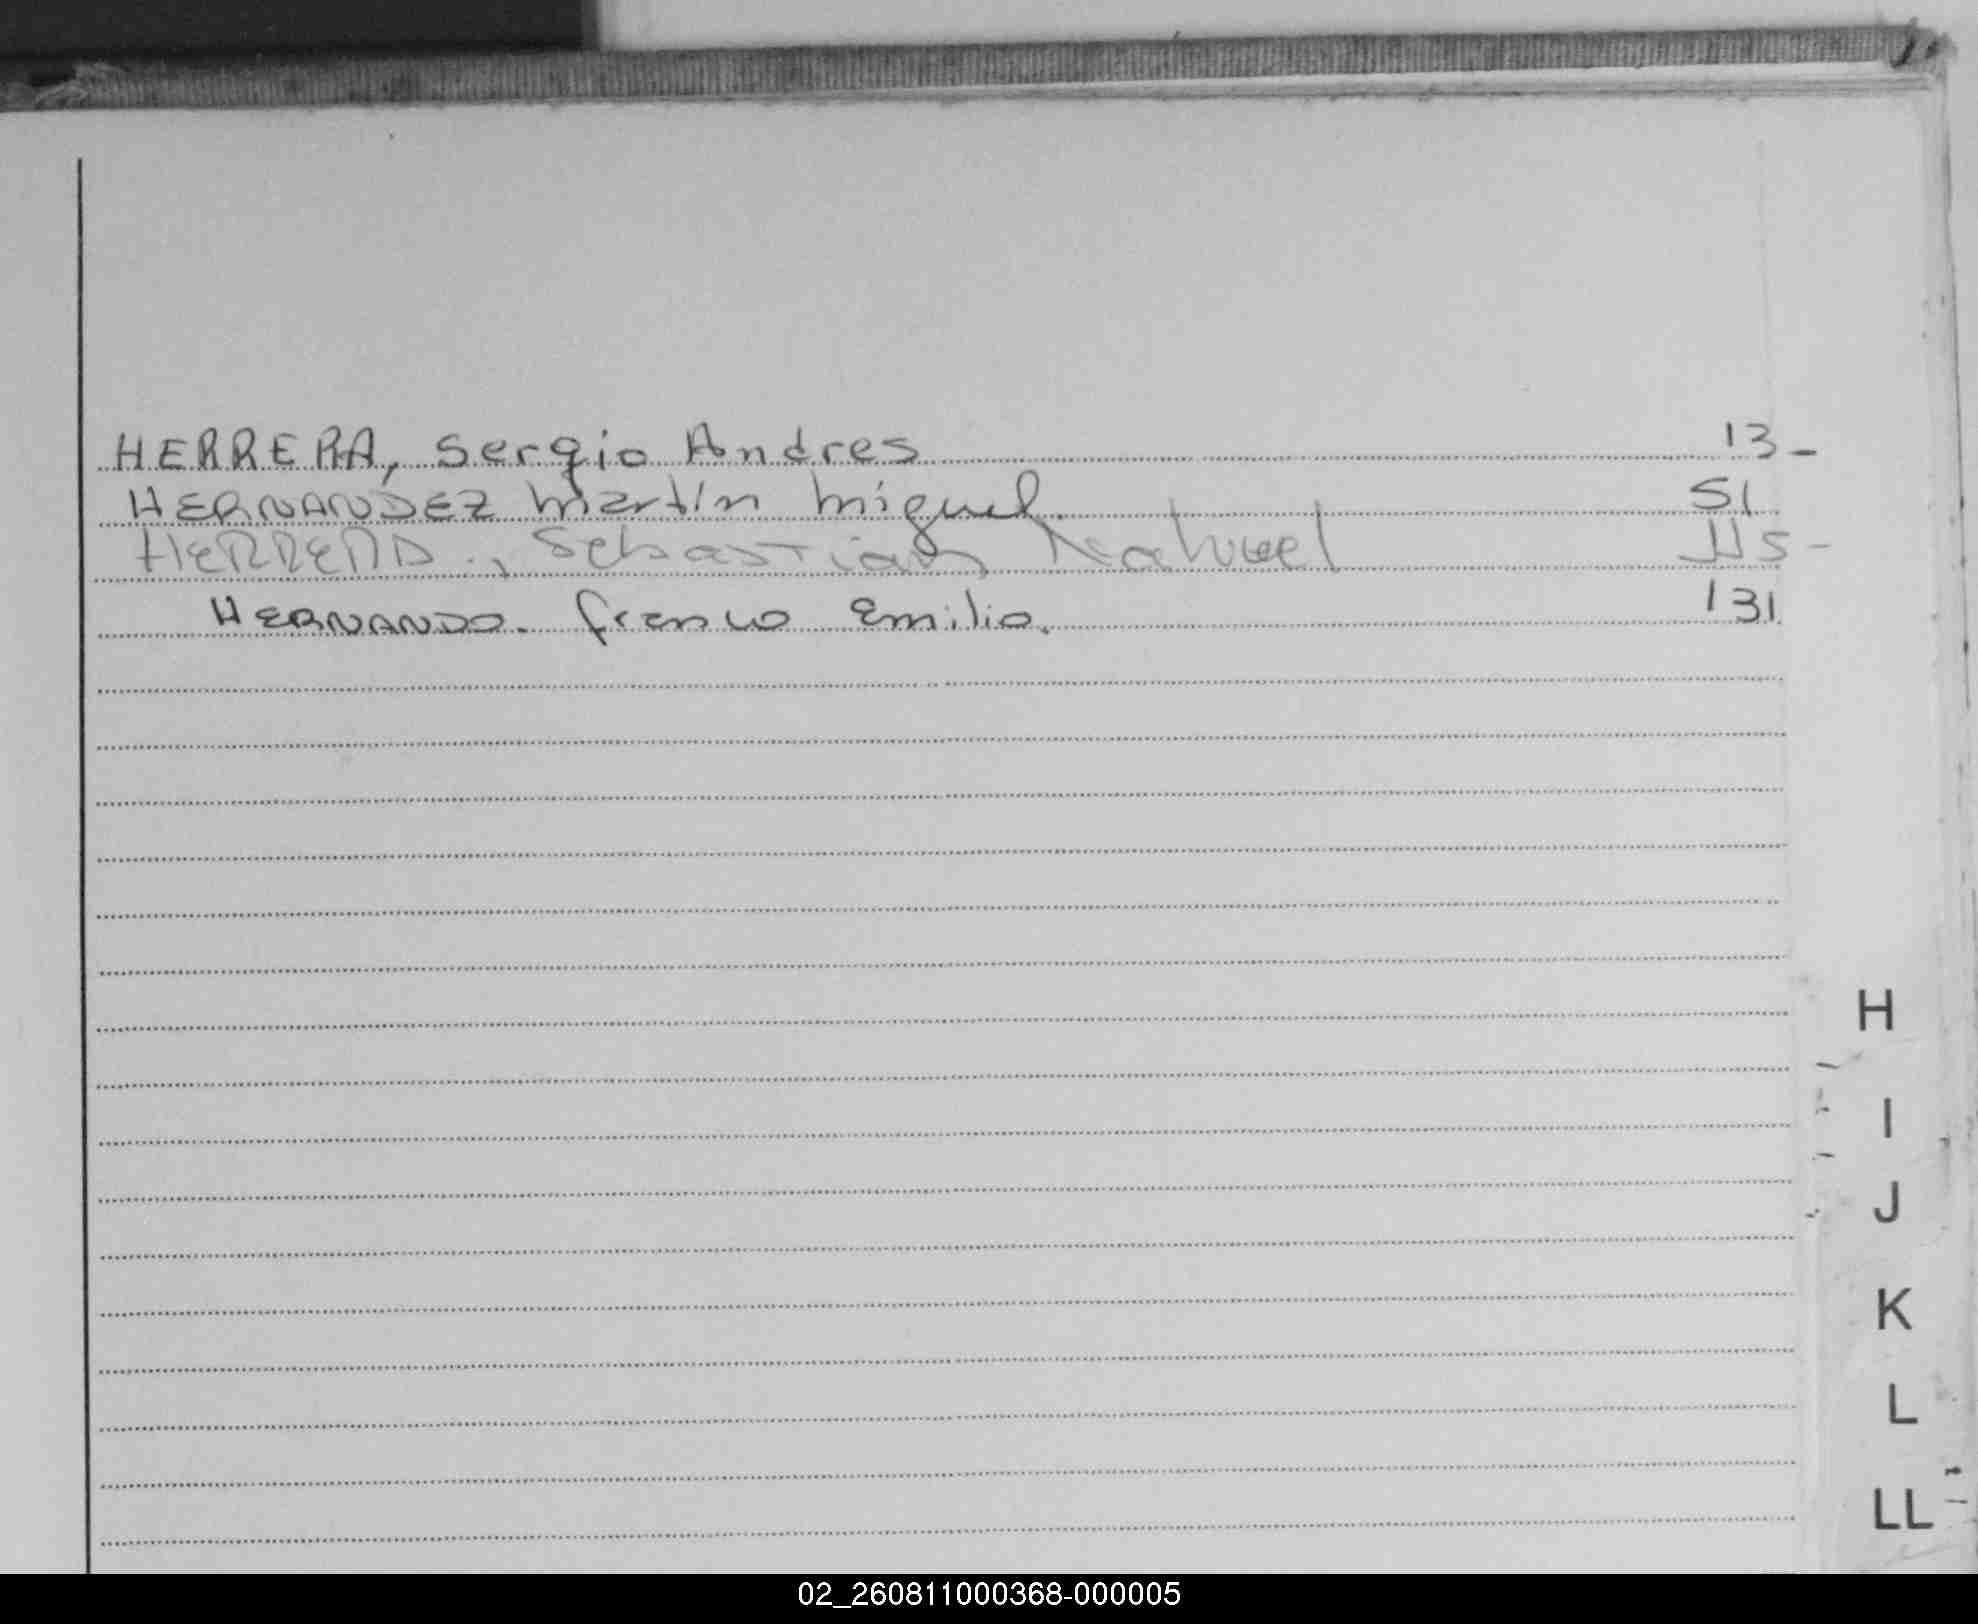 HERRERA, Sergio Andres 13-
HERNANDEZ Martín Miguel. 51
HERRERA., Sebastian Nahuel 115-
HERNANDO. Franco Emilio. 131
H
I
J
K
L
LL
02_260811000368-000005